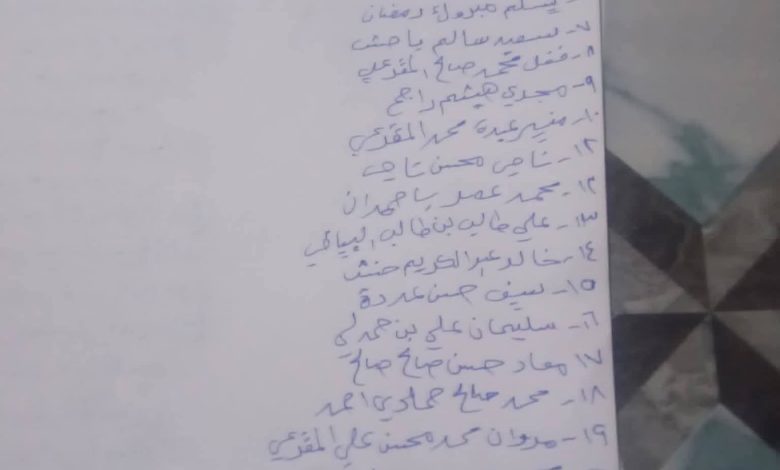 يسلم مبروك رمضان
٧- سعيد سالم باحش
٨- فضل محمد صالح المقرعي
٩- مجدي هيثم راجح
١٠- منير عبده محمد المقرعي
١٢- ناجي محسن ناجي
١٢- محمد عمر باحمدان
١٣- علي طالب بن طالب اليافعي
١٤- خالد عبدالكريم حنش
١٥- سيف حسن
١٦- سليمان علي بن حمدلي
١٧ معاد حسن صالح صالح
١٨- محمد صالح حمادي احمد
١٩- مروان محمد محسن علي المقرعي